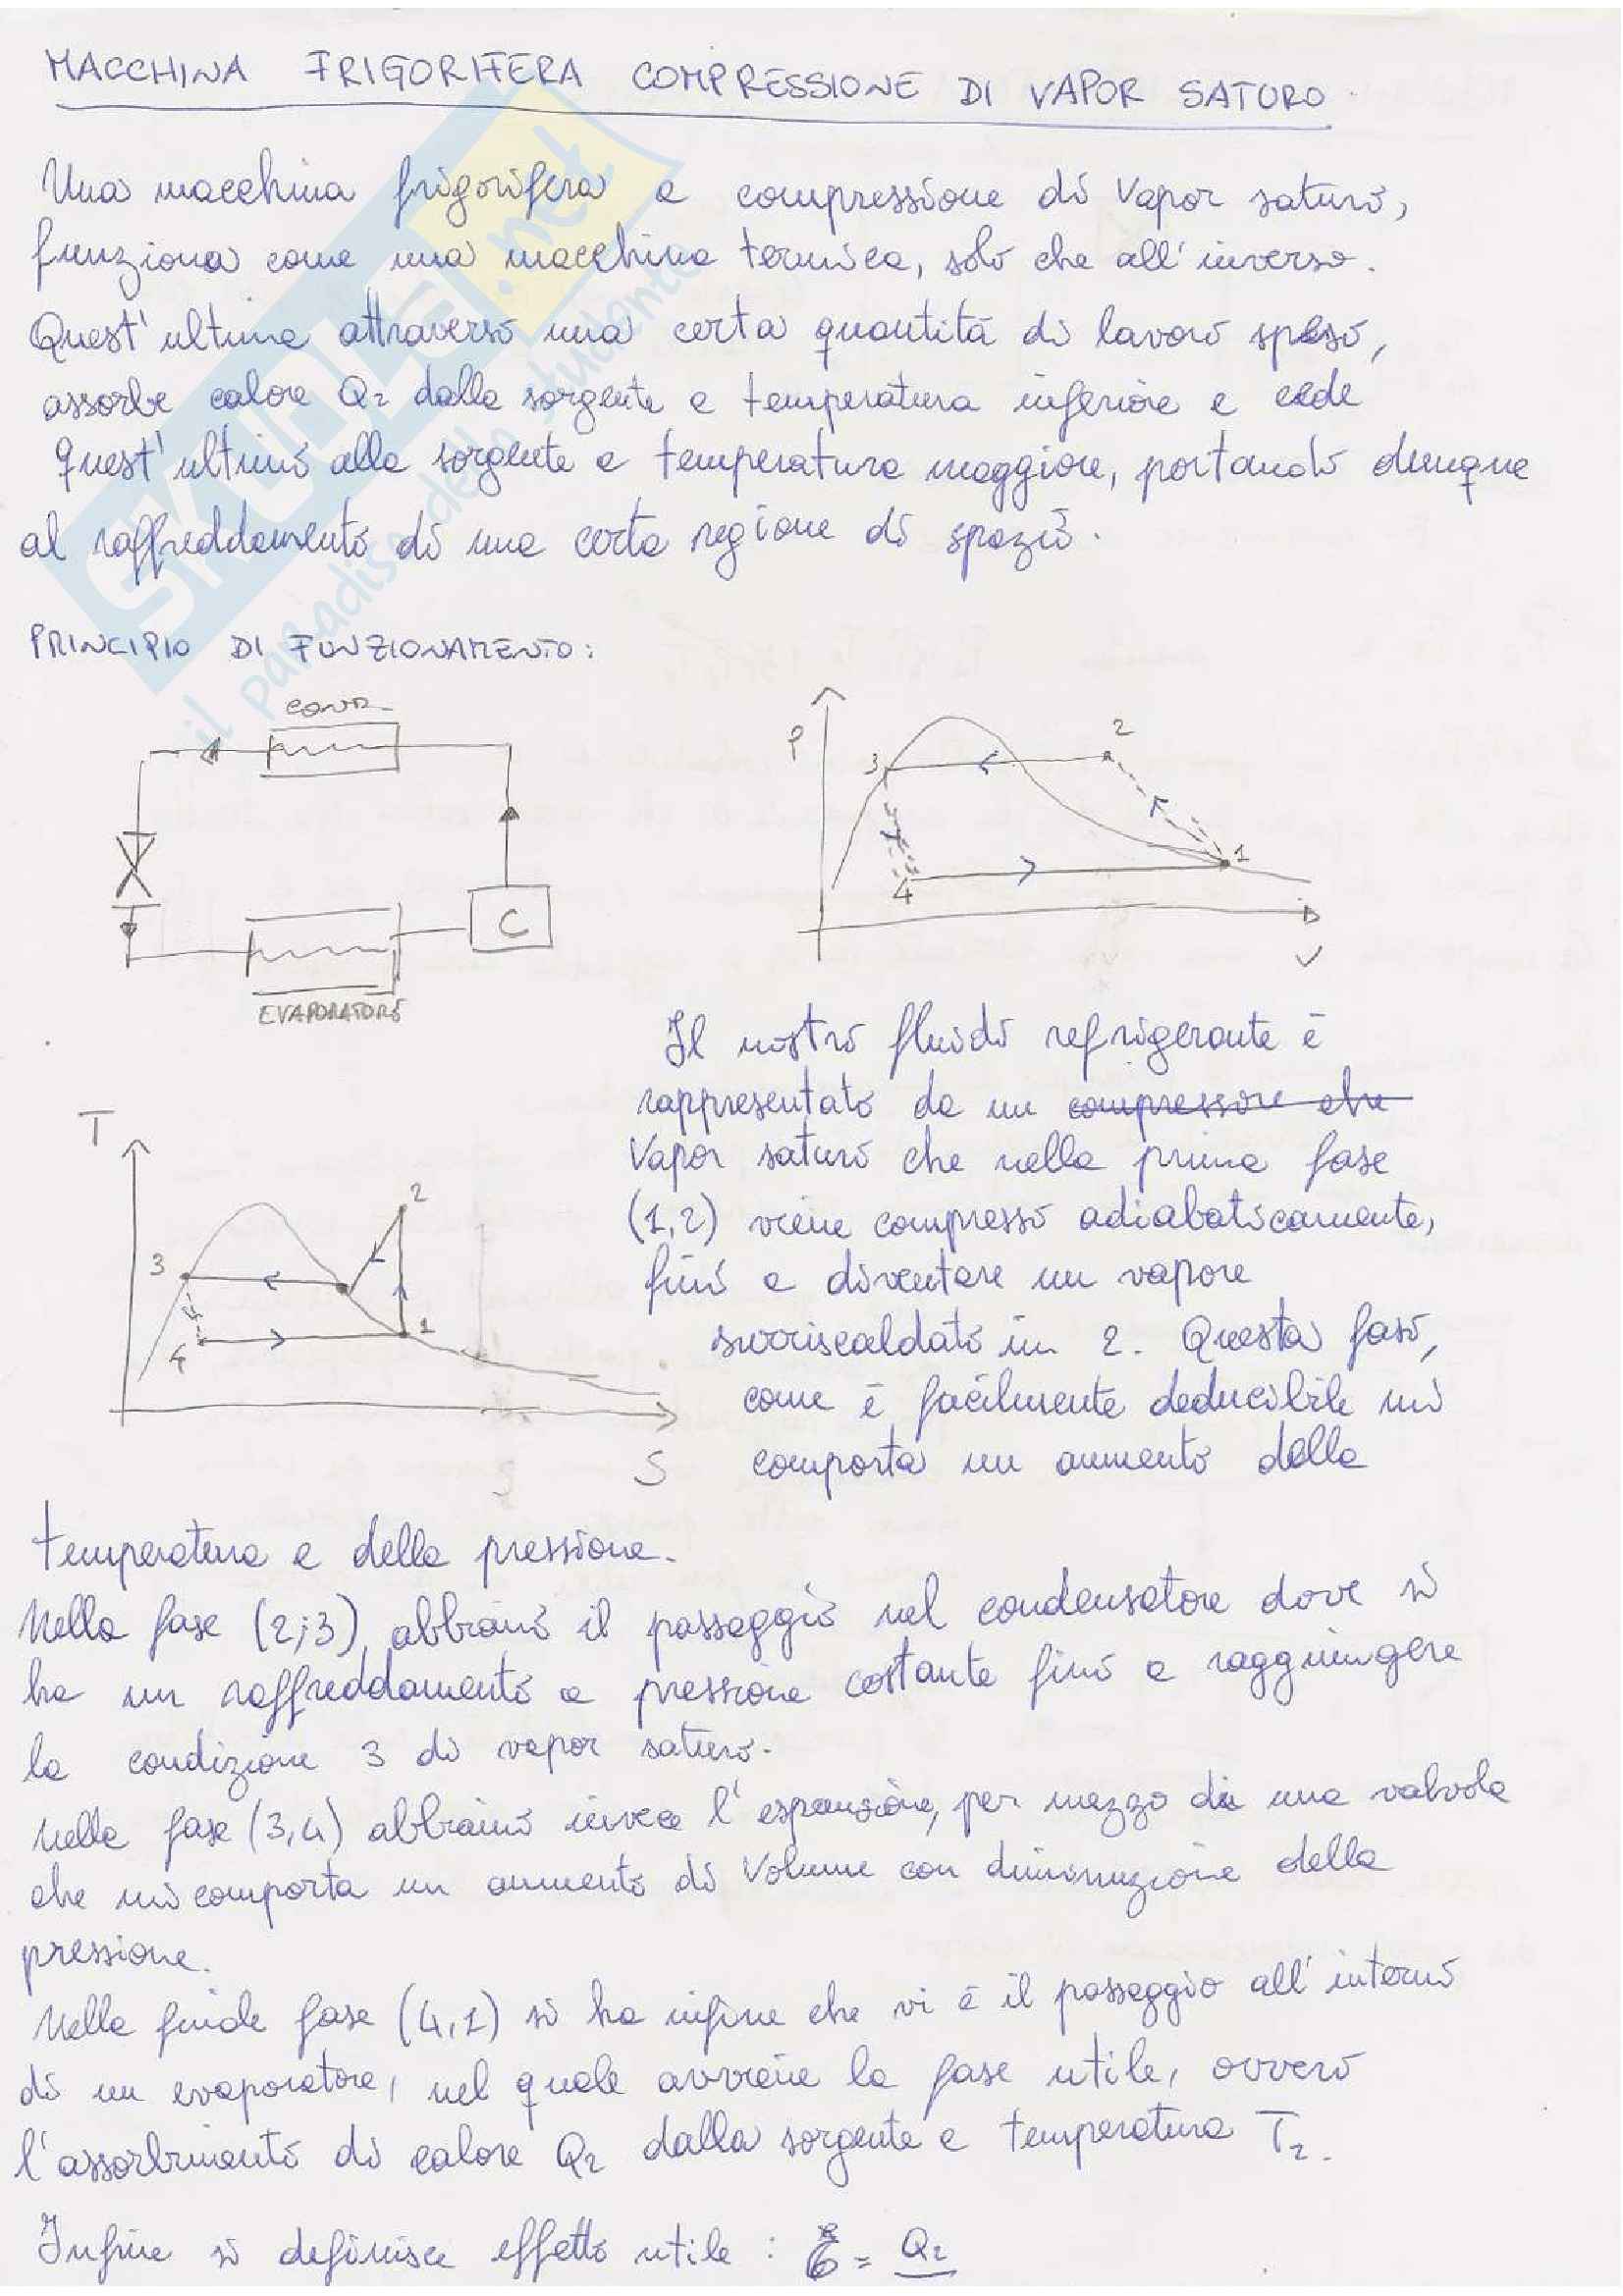 MACCHINA FRIGORIFERA COMPRESSIONE DI VAPOR SATURO
Una macchina frigorifera a compressione di vapor saturo,
funziona come una macchina termica, solo che all'inverso.
Quest'ultima attraverso una certa quantità di lavoro speso,
assorbe calore Q2 dalla sorgente a temperatura inferiore e cede
quest'ultimo alla sorgente a temperatura maggiore, portando dunque
al raffreddamento di una certa regione di spazio.
SKUOLA.net
il paradiso dello studente
PRINCIPIO DI FUNZIONAMENTO:
COND.
C
EVAPORATORE
P
2
3
1
4
V
Il nostro fluido refrigerante è
rappresentato da un compressore che
vapor saturo che nella prima fase
(1,2) viene compresso adiabaticamente,
fino a diventare un vapore
surriscaldato in 2. Questa fase,
come è facilmente deducibile mi
comporta un aumento della
T
2
3
1
4
S
temperatura e della pressione.
Nella fase (2;3) abbiamo il passaggio nel condensatore dove si
ha un raffreddamento a pressione costante fino a raggiungere
la condizione 3 di vapor saturo.
Nella fase (3,4) abbiamo invece l'espansione, per mezzo di una valvola
che mi comporta un aumento di volume con diminuzione della
pressione.
Nella finale fase (4,1) si ha infine che vi è il passaggio all'interno
di un evaporatore, nel quale avviene la fase utile, ovvero
l'assorbimento di calore Q2 dalla sorgente a temperatura T2.
Infine si definisce effetto utile : = Q2